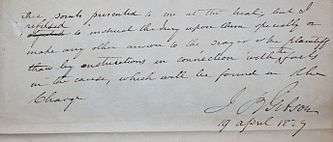 These points presented to me at the trial, but I
refused to instruct the Jury upon them specially or
make any other answer to the prayer of the plaintiff
than by instructions in connection with facts
in the cause, which will be found in the
Charge
J B Gibson
19 April 18